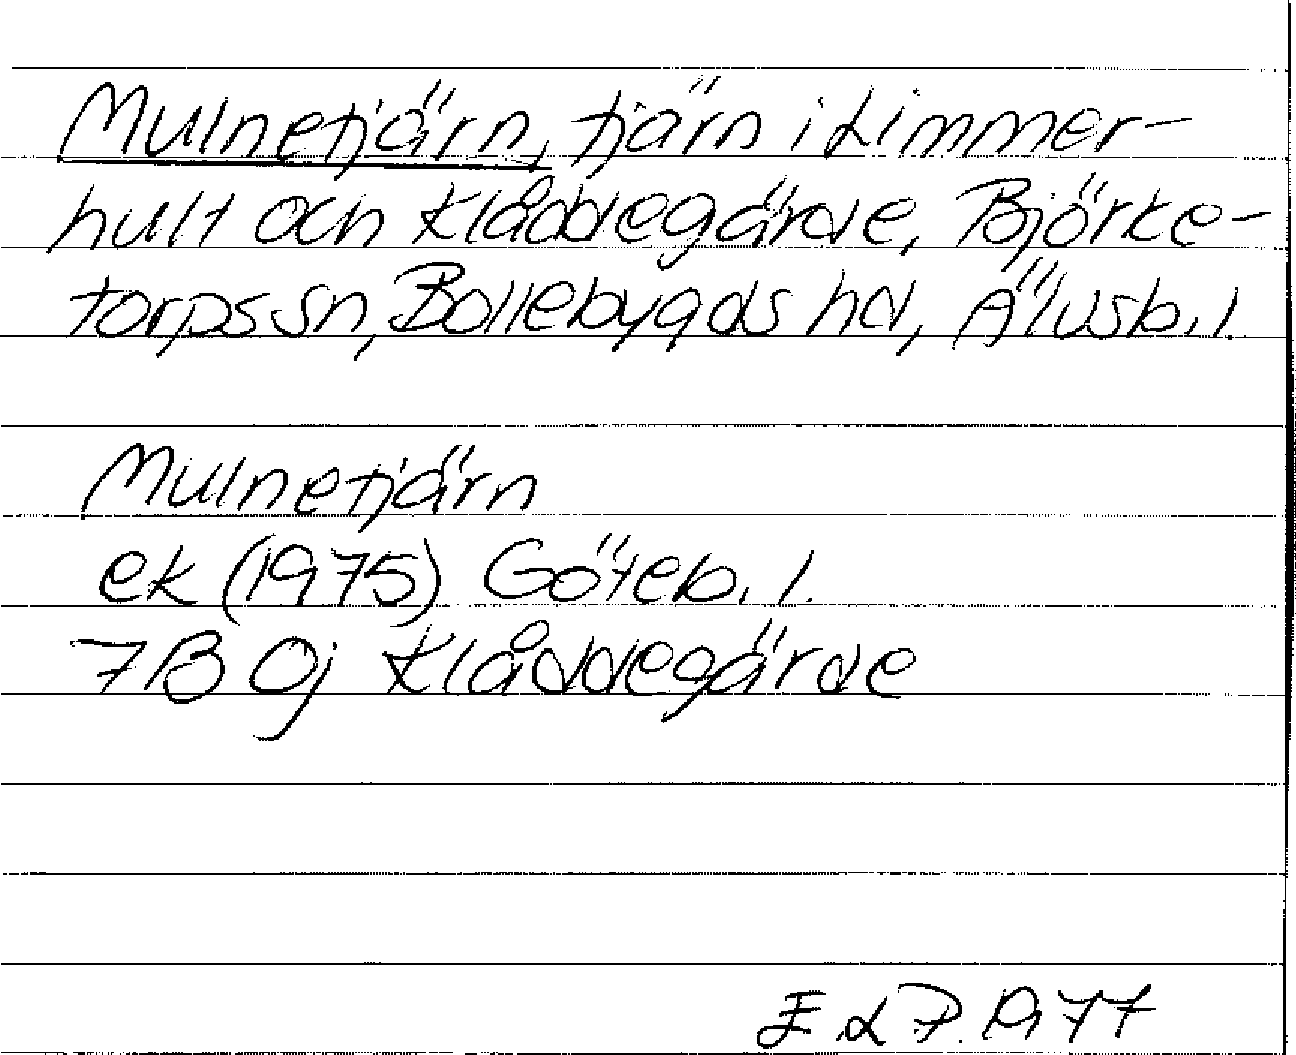 Mulnetjärn, tjärn i Limmer-
hult och Klåddegärde, Björke-
torps sn, Bollebygds hd, Älvsb. l.
Mulnetjärn
ek (1975) Göteb. l.
7B 0j Klåddegärde
E L P. 1977